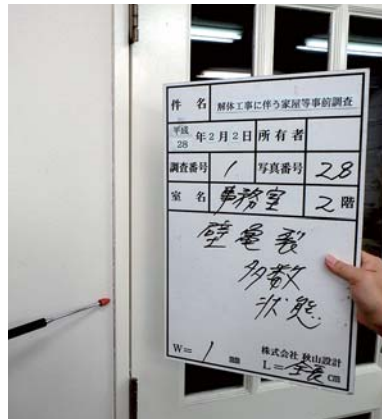 件 名 解体工事に伴う家屋等事前調査
平成28年2月2日 所有者
調査番号 1 写真番号 28
室 名 事務室 2階
壁亀裂
多数
状態
W= 1 mm 株式会社 秋山設計
L= 全長 cm